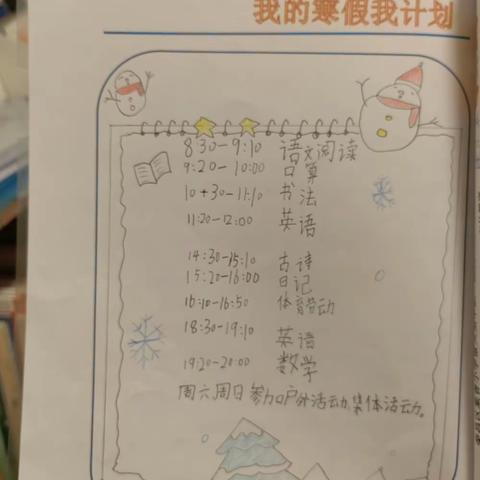 我的寒假我计划
8:30-9:10 语文阅读
9:20-10:00 口算
10+30-11:10 书法
11:20-12:00 英语
14:30-15:10 古诗
15:20-16:00 日记
16:10-16:50 体育劳动
18:30-19:10 英语
19:20-20:00 数学
周六周日参加户外活动,集体活动。